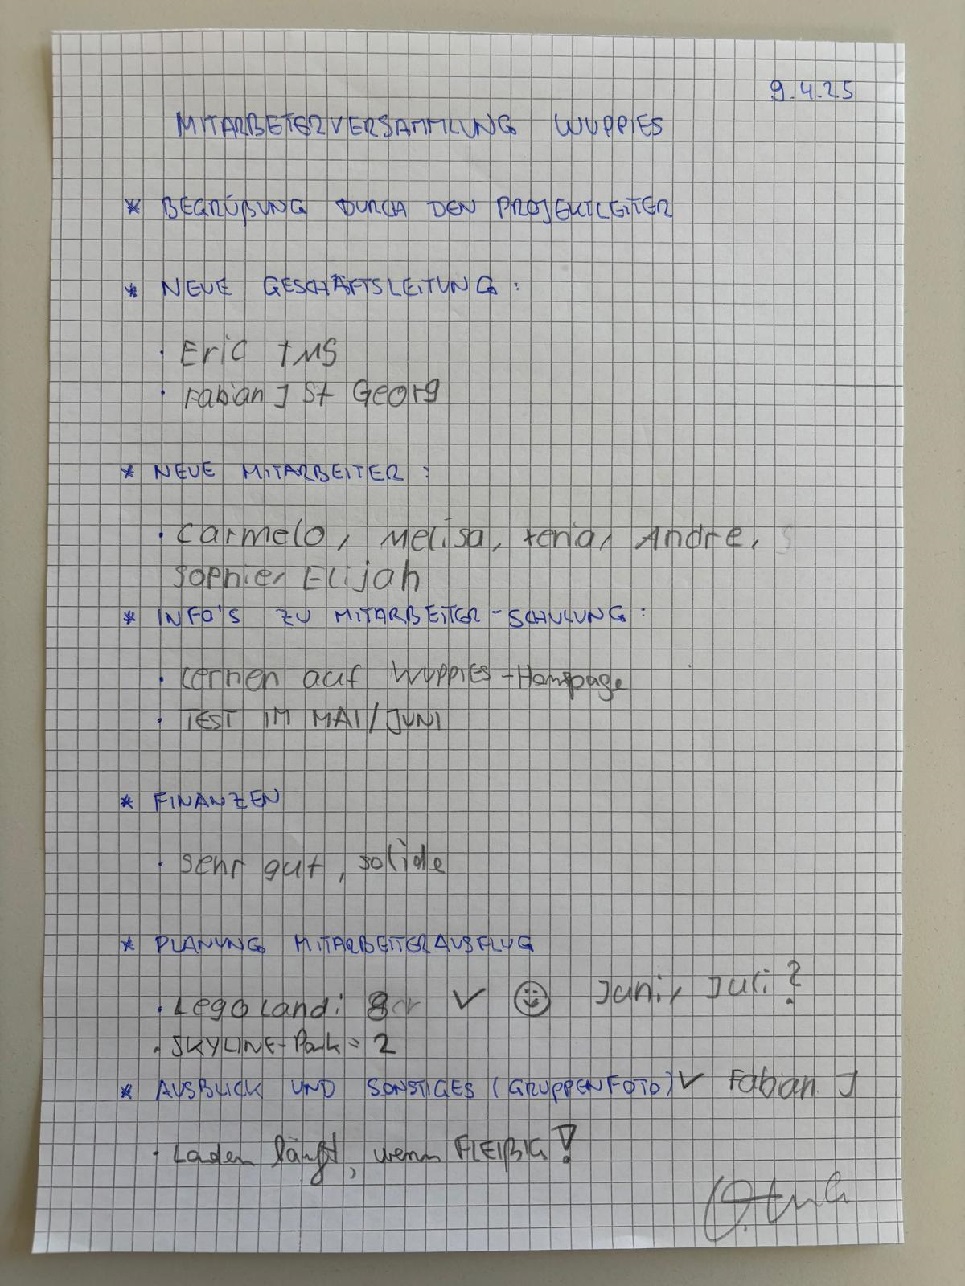 9.4.25
MITARBEITERVERSAMMLUNG WUPPIES
* BEGRÜßUNG DURCH DEN PROJEKTLEITER
* NEUE GESCHÄFTSLEITUNG :
· Eric TMS
· Fabian J St Georg
* NEUE MITARBEITER :
· Carmelo, Melisa, Xenia, Andre,
Sophie, Elijah
* INFO'S ZU MITARBEITER-SCHULUNG :
· Lernen auf WUPPIES-Hompage
· TEST IM MAI/JUNI
* FINANZEN
· sehr gut, solide
* PLANUNG MITARBEITERAUSFLUG
· Legoland: 8 ✓ ☺ Juni, Juli?
· SKYLINE-Park: 2
* AUSBLICK UND SONSTIGES (GRUPPENFOTO) ✓ Fabian J
· Laden läuft, wenn FLEIßIG!